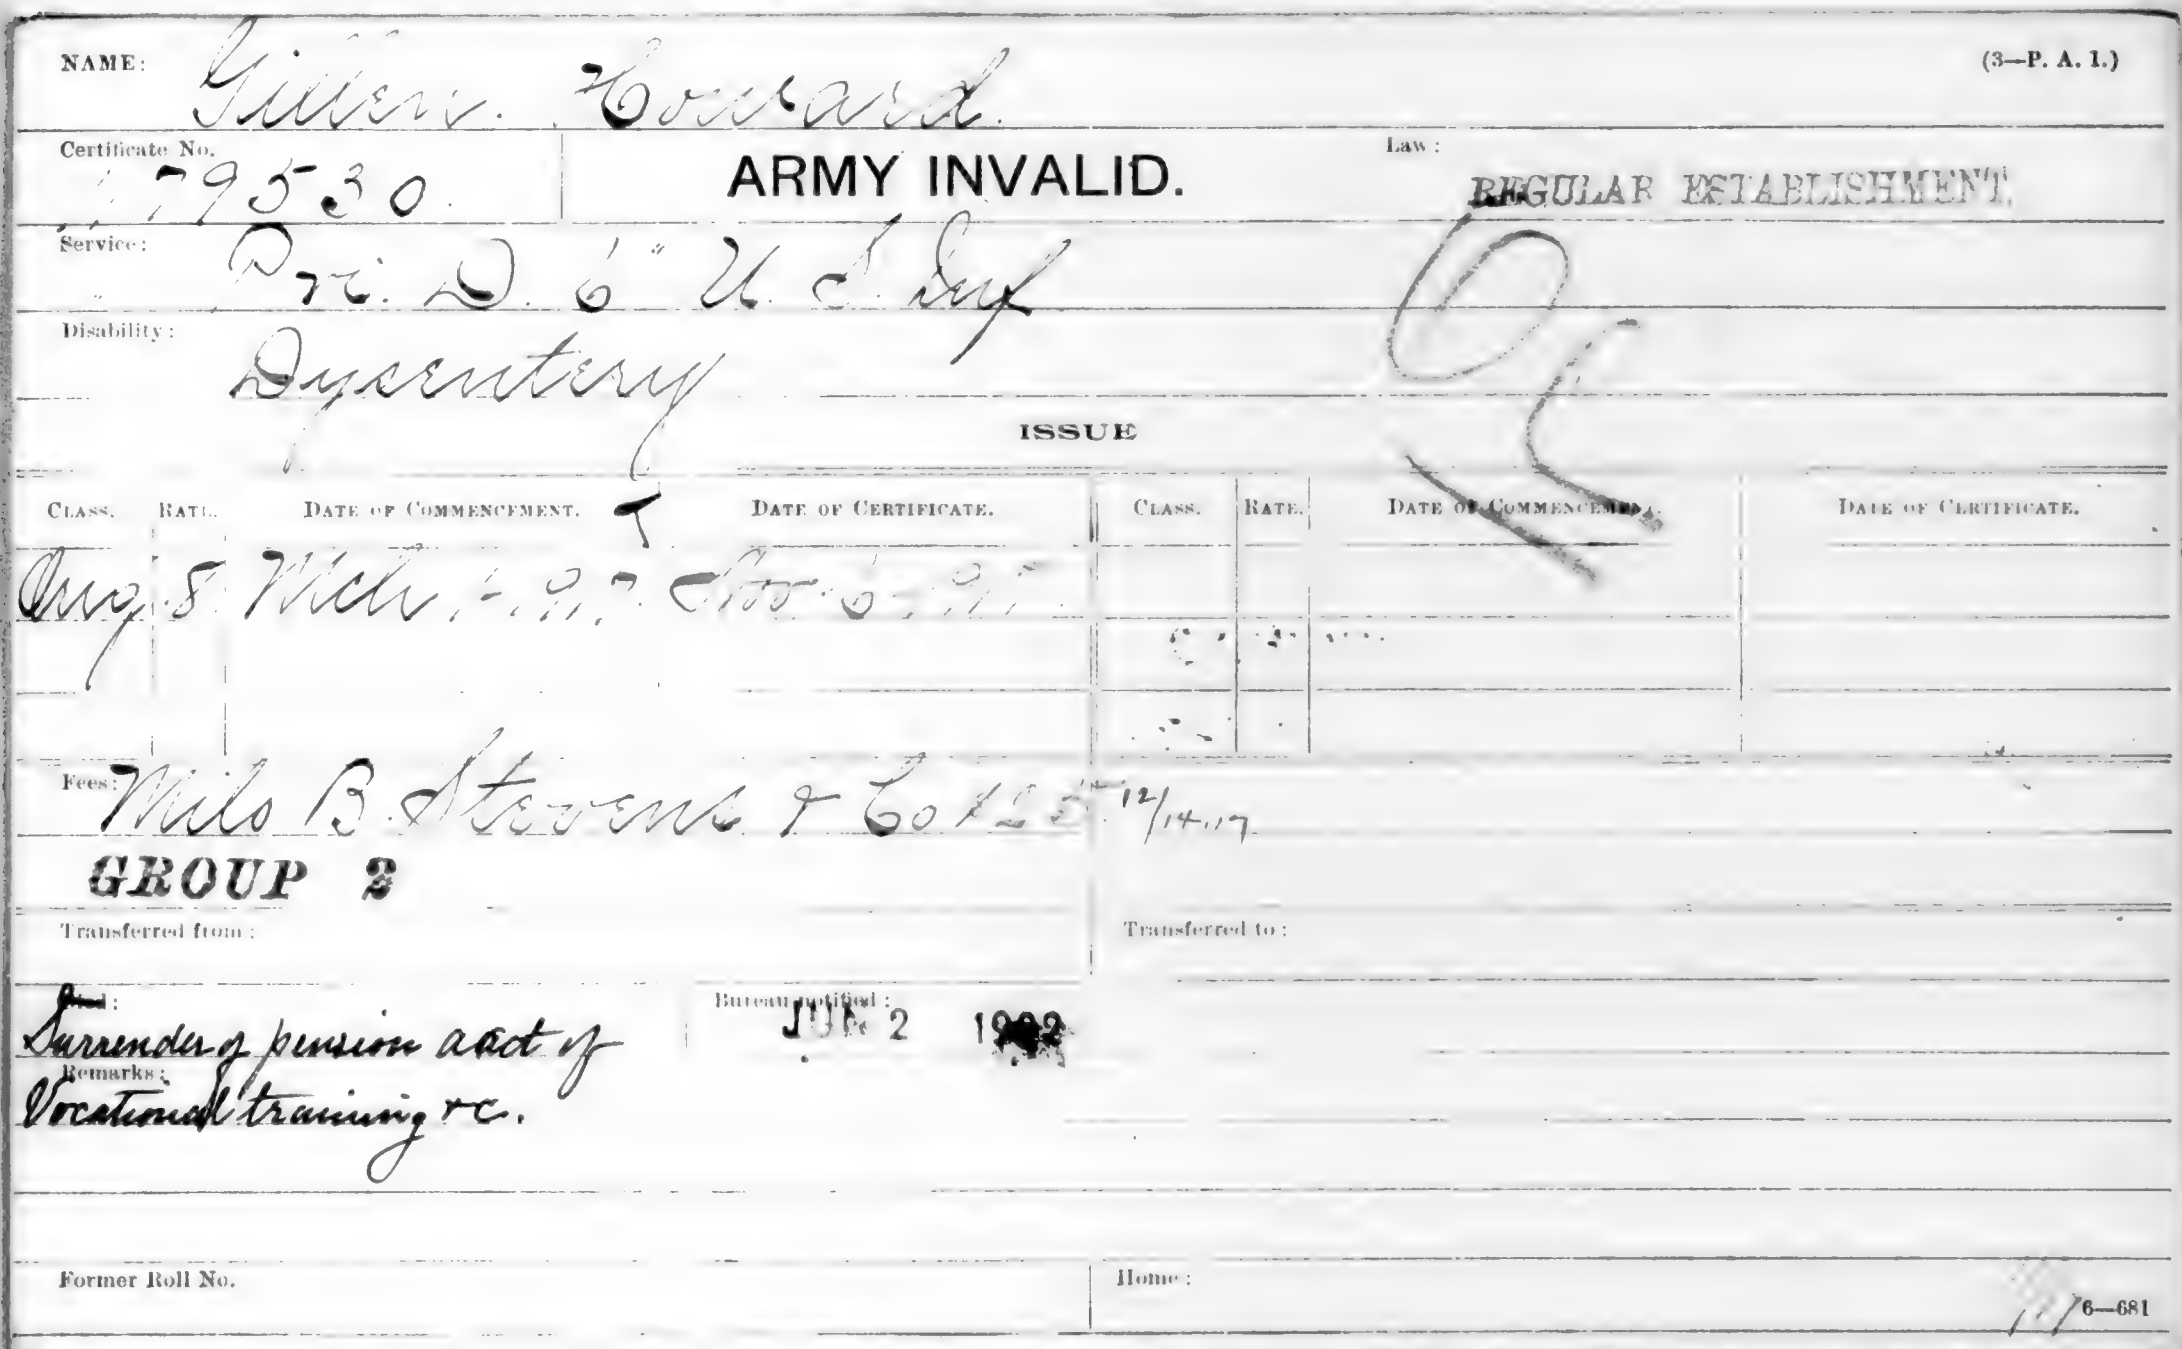 NAME: Gillen. Howard. (3—P. A. I.)
Certificate No. 1179530. ARMY INVALID. Law: REGULAR ESTABLISHMENT.
Service: Pri. D. 6" U. S. Inf
Disability: Dysentery
ISSUE
CLASS. RATE. DATE OF COMMENCEMENT. DATE OF CERTIFICATE. CLASS. RATE. DATE OF COMMENCEMENT. DATE OF CERTIFICATE.
Orig. 8 Mch 1-1917. Nov. 6-1917
Fees: Milo B. Stevens & Co 12/14.17
GROUP 2
Transferred from: Transferred to:
Died: Bureau notified:
Surrender of pension acct of JUN 2
Remarks:
Vocational training &c.
Former Roll No. Home:
6—681